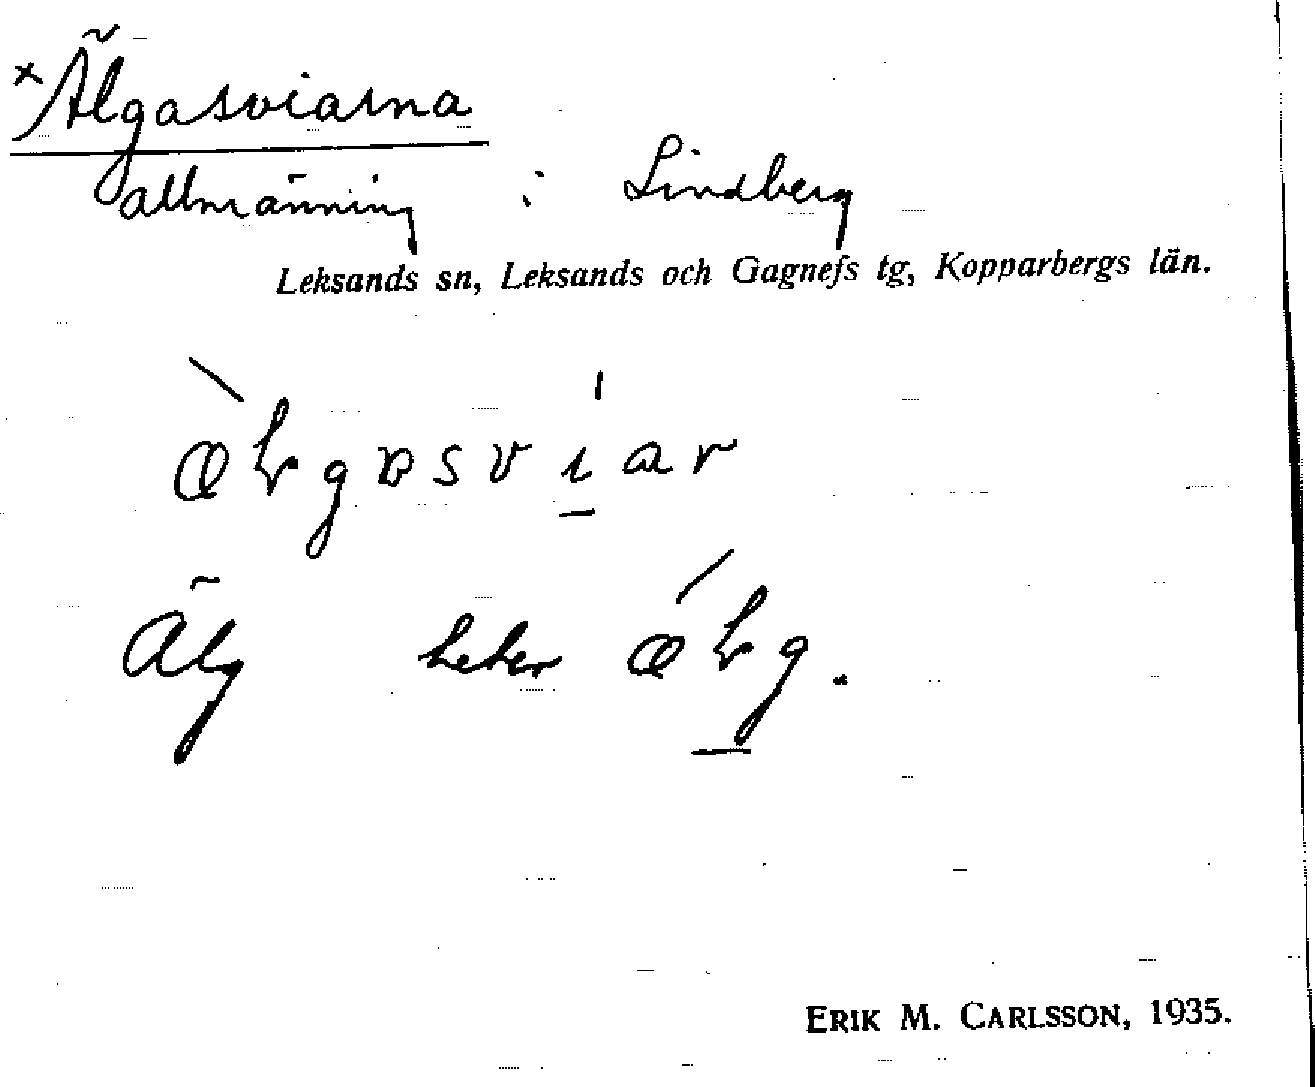 ×Älgasviarna
allmänning i Lindberg
Leksands sn, Leksands och Gagnefs tg, Kopparbergs län.
Älg heter
ERIK M. CARLSSON, 1935.